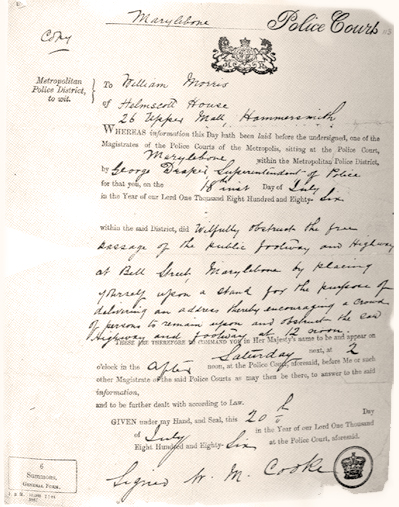 Marylebone
Police Court
Copy
Metropolitan
Police District,
to wit.
To William Morris
of Kelmscott House
26 Upper Mall, Hammersmith
WHEREAS information this Day hath been laid before the undersigned, one of the
Magistrates of the Police Courts of the Metropolis, sitting at the Police Court,
Marylebone within the Metropolitan Police District,
by George Draper Superintendent of Police
for that you, on the 18 inst Day of July
in the Year of our Lord One Thousand Eight Hundred and Eighty-Six
within the said District, did Wilfully obstruct the free
passage of the public footway and Highway
at Bell Street, Marylebone by placing
yourself upon a stand for the purpose of
delivering an address thereby encouraging a crowd
of persons to remain upon and obstruct the said
Highway and footway at 12 noon.
THESE ARE THEREFORE to COMMAND you in Her Majesty's name to be and appear on
Saturday next, at 2
o'clock in the After noon, at the Police Court, aforesaid, before Me or such
other Magistrate of the said Police Courts as may then be there, to answer to the said
information,
and to be further dealt with according to Law.
GIVEN under my Hand and Seal, this 20th Day
of July in the Year of our Lord One Thousand
Eight Hundred and Eighty-Six at the Police Court, aforesaid.
Signed W. M. Cooke
6
SUMMONS,
GENERAL FORM.